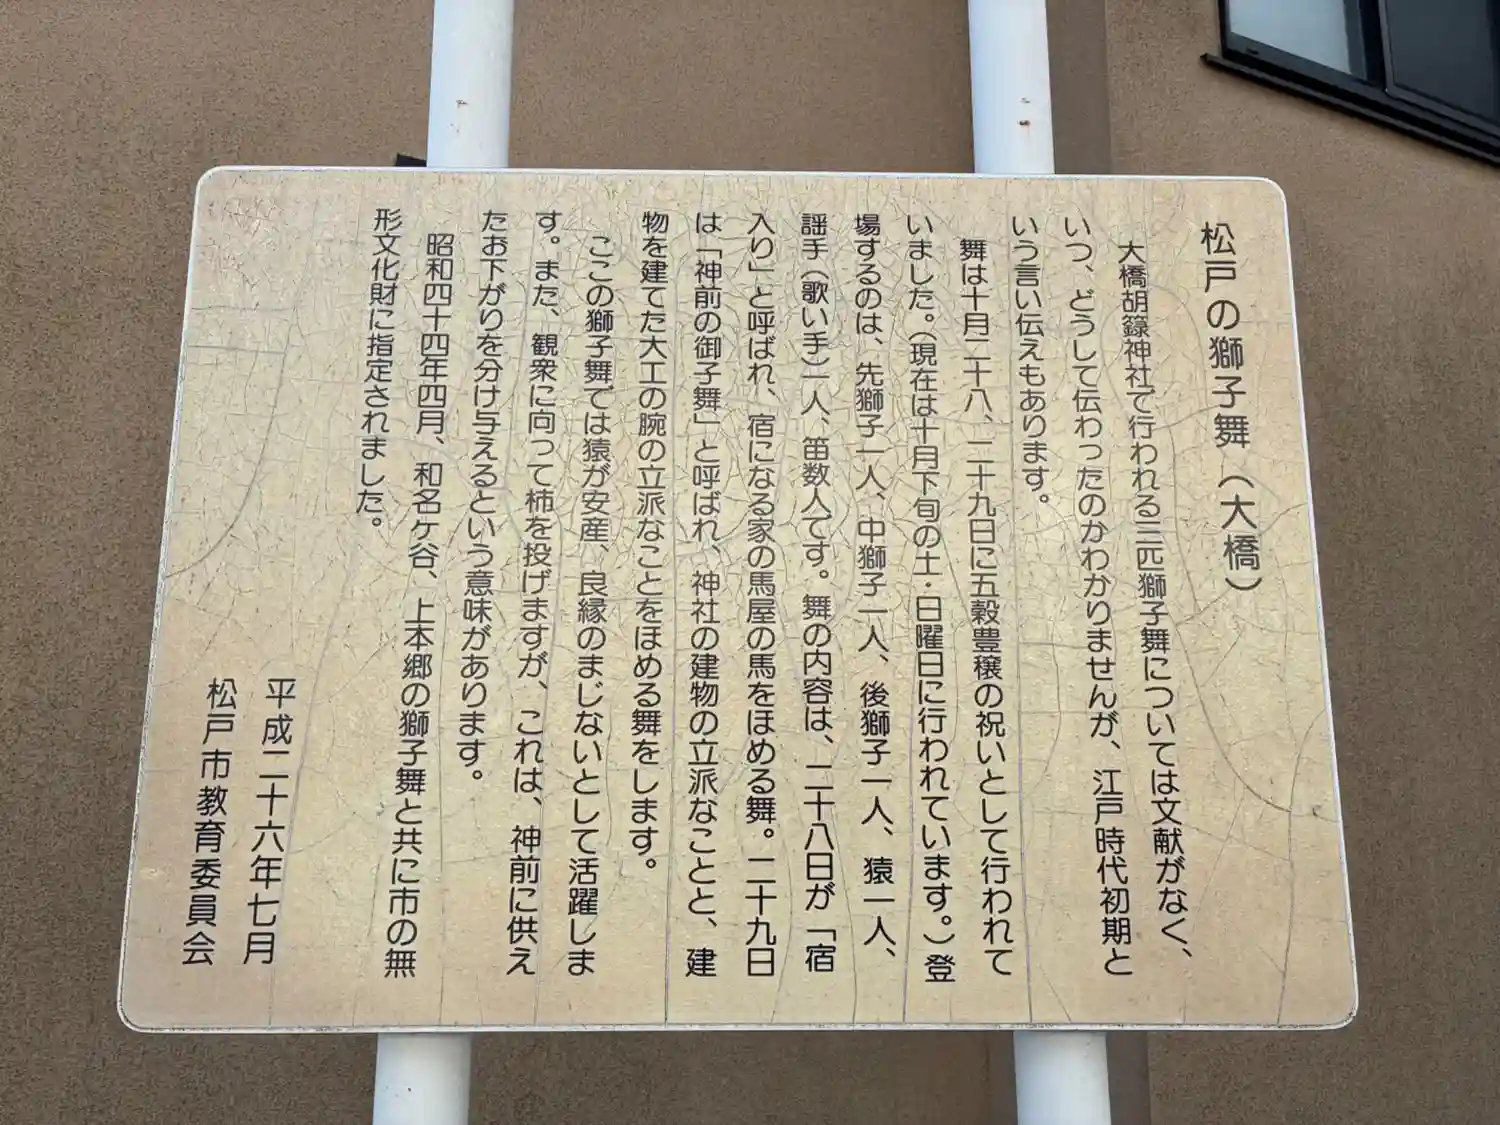 松戸の獅子舞（大橋）
大橋胡籙神社で行われる三匹獅子舞については文献がなく、
いつ、どうして伝わったのかわかりませんが、江戸時代初期と
いう言い伝えもあります。
舞は十月二十八、二十九日に五穀豊穣の祝いとして行われて
いました。（現在は十月下旬の土・日曜日に行われています。）登
場するのは、先獅子一人、中獅子一人、後獅子一人、猿一人、
謡手（歌い手）一人、笛数人です。舞の内容は、二十八日が「宿
入り」と呼ばれ、宿になる家の馬屋の馬をほめる舞。二十九日
は「神前の御子舞」と呼ばれ、神社の建物の立派なことと、建
物を建てた大工の腕の立派なことをほめる舞をします。
ここの獅子舞では猿が安産、良縁のまじないとして活躍しま
す。また、観衆に向って柿を投げますが、これは、神前に供え
たお下がりを分け与えるという意味があります。
昭和四十四年四月、和名ヶ谷、上本郷の獅子舞と共に市の無
形文化財に指定されました。
平成二十六年七月
松戸市教育委員会